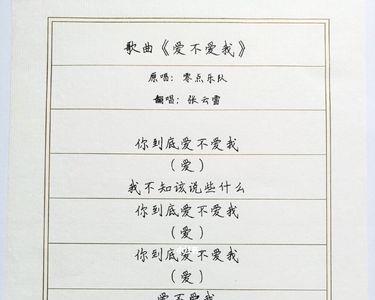 歌曲《爱不爱我》
原唱：零点乐队
翻唱：张云雷
你到底爱不爱我
（爱）
我不知该说些什么
你到底爱不爱我
（爱）
你到底爱不爱我
（爱）
爱不爱我